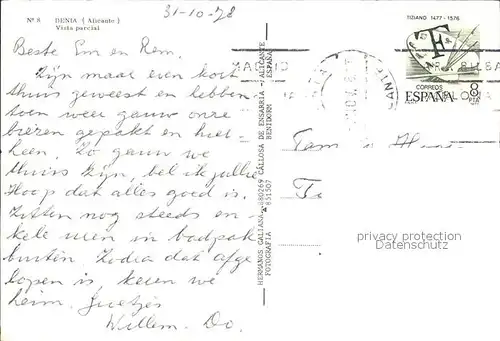 Nº 8 DENIA ( Alicante )
Vista parcial
31-10-78
Beste Em en Rem.
Zijn maar even kort
thuis geweest en hebben
toen weer gauw onze
biezen gepakt en hier-
heen. Zo gauw we
thuis zijn, bel ik jullie
Hoop dat alles goed is.
Zitten nog steeds en-
kele uren in badpak
buiten. Zodra dat afge
lopen is, keren we
heim. Groetjes
Willem. Do.
HERMANOS GALIANA - 880269 CALLOSA DE ENSARRIA - ALICANTE
FOTOGRAFIA 851507 BENIDORM ESPAÑA
TIZIANO 1477 - 1576
CORREOS
ESPAÑA 8
PTA
Fam
privacy protection
Datenschutz